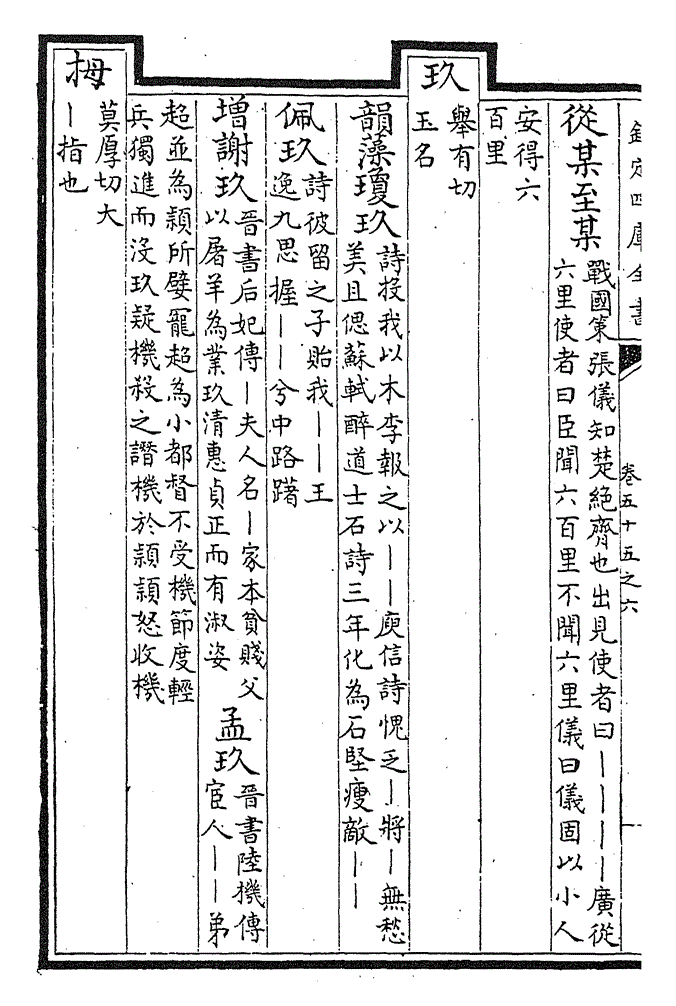 欽定四庫全書
卷五十五之六
從某至某 戰國策張儀知楚絕齊也出見使者曰丨丨丨丨廣從
六里使者曰臣聞六百里不聞六里儀曰儀固以小人
安得六
百里
玖 舉有切
玉名
韻藻瓊玖 詩投我以木李報之以丨丨庾信詩愧乏丨將丨無愁
美且偲蘇軾醉道士石詩三年化為石堅瘦敵丨丨
佩玖 詩彼留之子貽我丨丨王
逸九思握丨丨兮中路躇
增謝玖 晉書后妃傳丨夫人名丨家本貧賤父
以屠羊為業玖清惠貞正而有淑姿
孟玖 晉書陸機傳
宦人丨丨弟
超並為穎所嬖寵超為小都督不受機節度輕
兵獨進而沒玖疑機殺之譖機於穎穎怒收機
拇 莫厚切大
丨指也